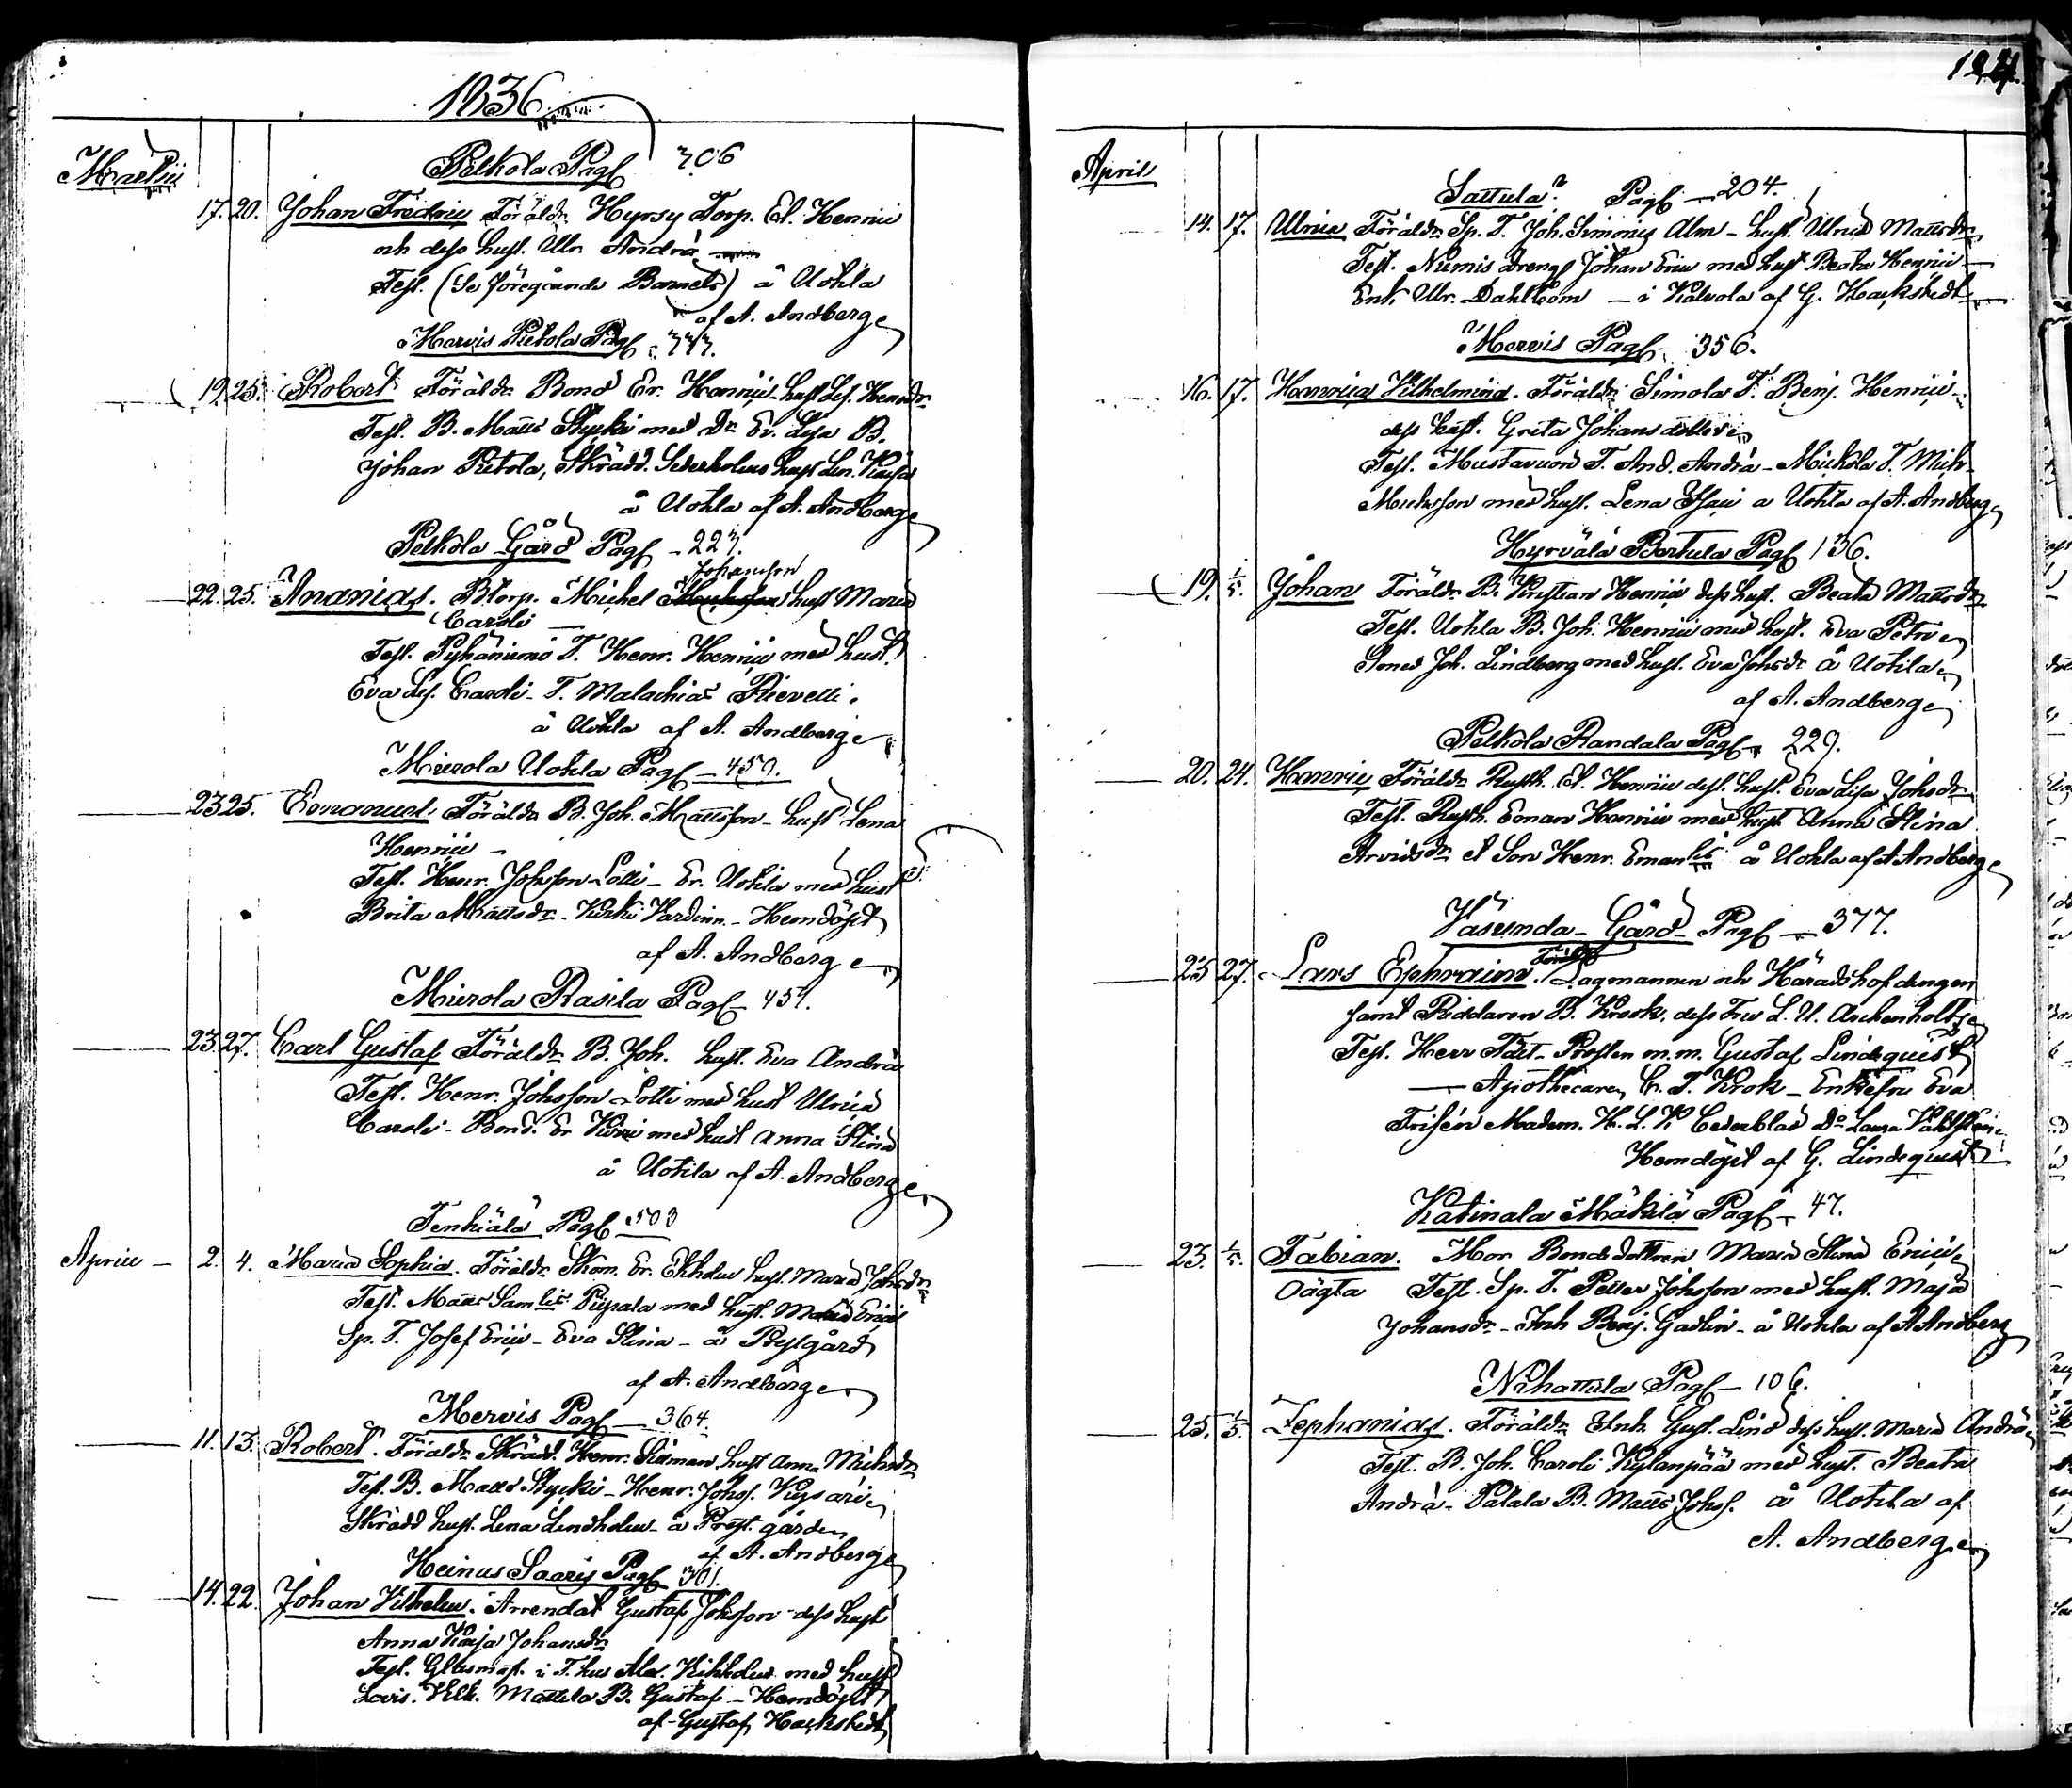 1836
Martii
Pelkola Pag. 306
17. 20. Johan Fredric Föräldr. Hyrsy Torp. El. Henrici
och dess hust. Ulr. Andrä
Test. (Se föregående Barnets) å Uotila
af A. Andberg
Mervis Pietola Pag.
19. 25. Robert Föräldr. Bond Er. Henrici hust Lis. Henrsdr
Test. B. Matts Stycki med Dr. Ev. Lisa B.
Johan Pietola, Skrädd. Sederholms hust Len. Kaisa
å Uotila af A. Andberg
Pelkola Gård Pag. 223.
Johansson
22. 25. Ananias. B Torp. Michel hust Maria
Caroli
Test. Pyhäniemi T. Henr. Henrici med hust.
Eva Lis. Caroli - T. Malachias
å Uotila af A. Andberg
Mierola Uotila Pag. 450.
23 25. Emanuel Föräldr. B. Joh. Mattsson - hust Lena
Henrici -
Test. Henr. Johsson Lotti - Er. Uotila med hust
Brita Mattsdr. - Hemdöpt
af A. Andberg
Mierola Rasila Pag. 451.
23. 27. Carl Gustaf Föräldr. B. Joh. hust. Eva Andrä
Test. Henr. Johsson Lotti med hust Ulrica
Caroli - Bond. Er med hust Anna Stina
å Uotila af A. Andberg
Tenhiälä Pag. 503
April - 2. 4. Maria Sophia. Föräldr. Skom. Er. Ekholm hust. Maria Johsdr
Test. Matts Saml. med hust. Maria Erici
Sp. T. Josef Erici - Eva Stina - å Prestgård
af A. Andberg
Mervis Pag. - 364.
11. 13. Robert. Föräldr. Skrädd. Henr. hust Anna Michsdr
Test. B. Matts Stycki - Henr. Johss.
Skrädd hust. Lena Lindholm - å Prest.gården
af A. Andberg
Heinus Saaris Pag. 301.
14. 22. Johan Vilhelm. Arrendat Gustaf Johsson - dess hust
Anna Kaisa Johansdr
Test. i T.hus Alex. med hust
Lovis. Mattila B. Gustaf - Hemdöpt
af Gustaf Hackstedt
April
Sattula Pag. - 204.
14. 17. Ulrica Föräldr. Sp. T. Joh. Simonis Alm - hust. Ulrica Mattsdr
Test. Niemis Dreng Johan Erici med hust Beata Henrici -
Enk. Ulr. Dahlbom - i Kalvola af G. Hackstedt
Mervis Pag. 356.
16. 17. Henrica Vilhelmina. Föräldr. Simola T. Benj. Henrici -
dess hust. Greta Johansdotter
Test. T. And. Andrä - Mickola T. Mich.
Michsson med hust. Lena Isaci å Uotila af A. Andberg
Hyrvälä Bertula Pag. 136.
19. 1/5. Johan Föräldr. B. Kristian Henrici dess hust. Beata Mattsdr
Test. Uotila B. Joh. Henrici med hust. Eva Petri
Smed Joh. Lindberg med hust. Eva Johsdr å Uotila
af A. Andberg
Pelkola Randala Pag. 229.
20. 24. Henric Föräldr. Rusth. El. Henrici dess. hust. Eva Lisa Johsdr.
Test. Rusth. Eman Henrici med hust. Anna Stina
Arvidsdr. & Son Henr. Eman å Uotila af A Andberg
Väsunda - Gård - Pag. - 377.
25 27. Lars Ephraim. Föräldr Lagmannen och Häradshöfdingen
samt Riddaren B. Krook, dess Fru L. U. Archenholtz
Test. Herr Fält-Prosten m.m. Gustaf Lindequist
- Apothecaren C. T. Krok - Enkefru Eva
Frisén Madem. H. L. K Cederblad Do Laura
Hemdöpt af G. Lindequist
Katinala Mäkilä Pag. - 47.
23. 1/5. Fabian. Mor Bondedottren Maria Stina Erici
Oägta Test. Sp. T. Petter Johsson med hust. Maja
Johansdr - Inh Benj. Gadlin - å Uotila af A Andberg
Nihattula Pag. - 106.
25. 1/5. Zephanias. Föräldr. Inh. Gust. Lind dess hust. Maria Andrä
Test. B. Joh. Caroli Kylänpää med hust. Beata
Andrä - Patala B. Matts Johss. å Uotila af
A. Andberg